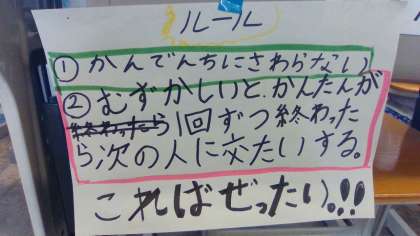 ルール
①かんでんちにさわらない
②むずかしいと、かんたんが
終わったら1回ずつ終わった
ら次の人に交たいする。
こればぜったい!!